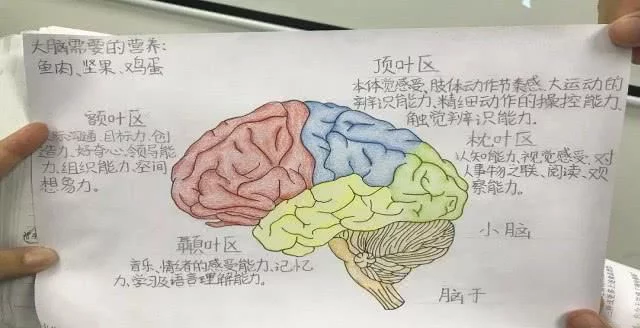 大脑需要的营养:
鱼肉、坚果、鸡蛋
额叶区
际沟通、目标力、创
造力、好奇心、领导能
力、组织能力、空间
想象力。
顶叶区
本体觉感受、肢体动作节奏感、大运动的
辨识能力、精细动作的操控能力、
触觉辨识能力。
枕叶区
认知能力、视觉感受、对
人事物之联、阅读、观
察能力。
颞叶区
音乐、情绪的感受能力、记忆
力、学习及语言理解能力。
小脑
脑干